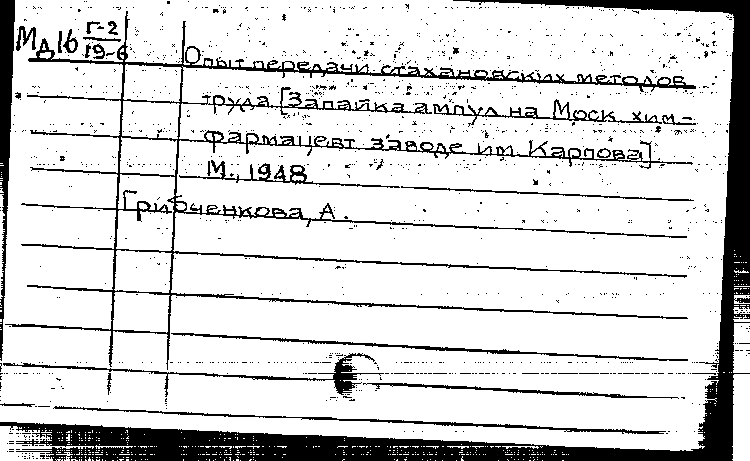 Мд 16 Г-2
19-6
Опыт передачи стахановских методов
труда [Запайка ампул на Моск. хим-
фармацевт. заводе им. Карпова].
М., 1948
Грибченкова, А.